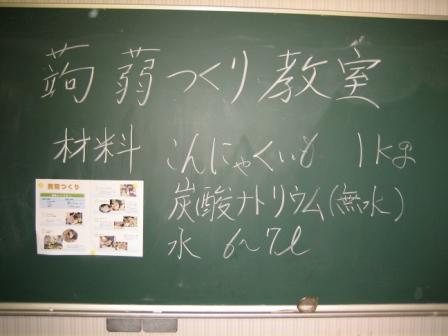 蒟蒻つくり教室
材料 こんにゃくいも 1kg
炭酸ナトリウム(無水)
水 6~7ℓ